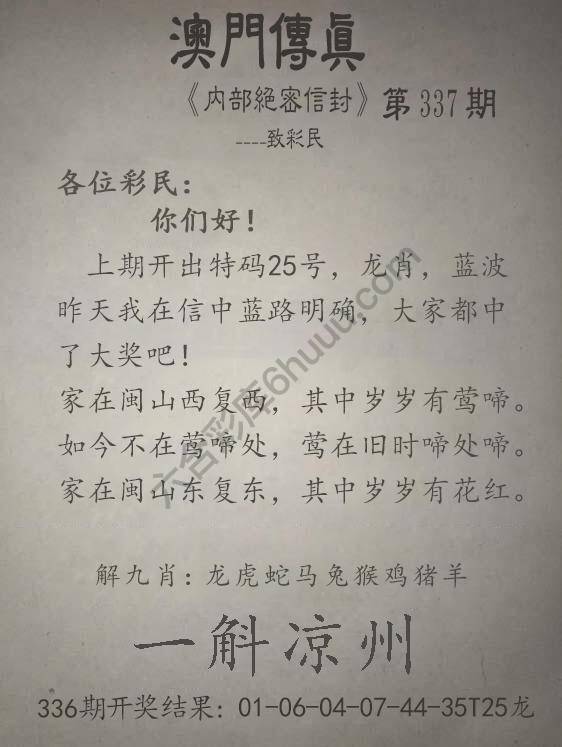 澳門傳眞
《内部絕密信封》第337期
----致彩民
各位彩民：
你们好！
上期开出特码25号，龙肖，蓝波
昨天我在信中蓝路明确，大家都中
了大奖吧！
家在闽山西复西，其中岁岁有莺啼。
如今不在莺啼处，莺在旧时啼处啼。
家在闽山东复东，其中岁岁有花红。
解九肖：龙虎蛇马兔猴鸡猪羊
一斛凉州
336期开奖结果：01-06-04-07-44-35T25龙
六合彩库6huuu.com